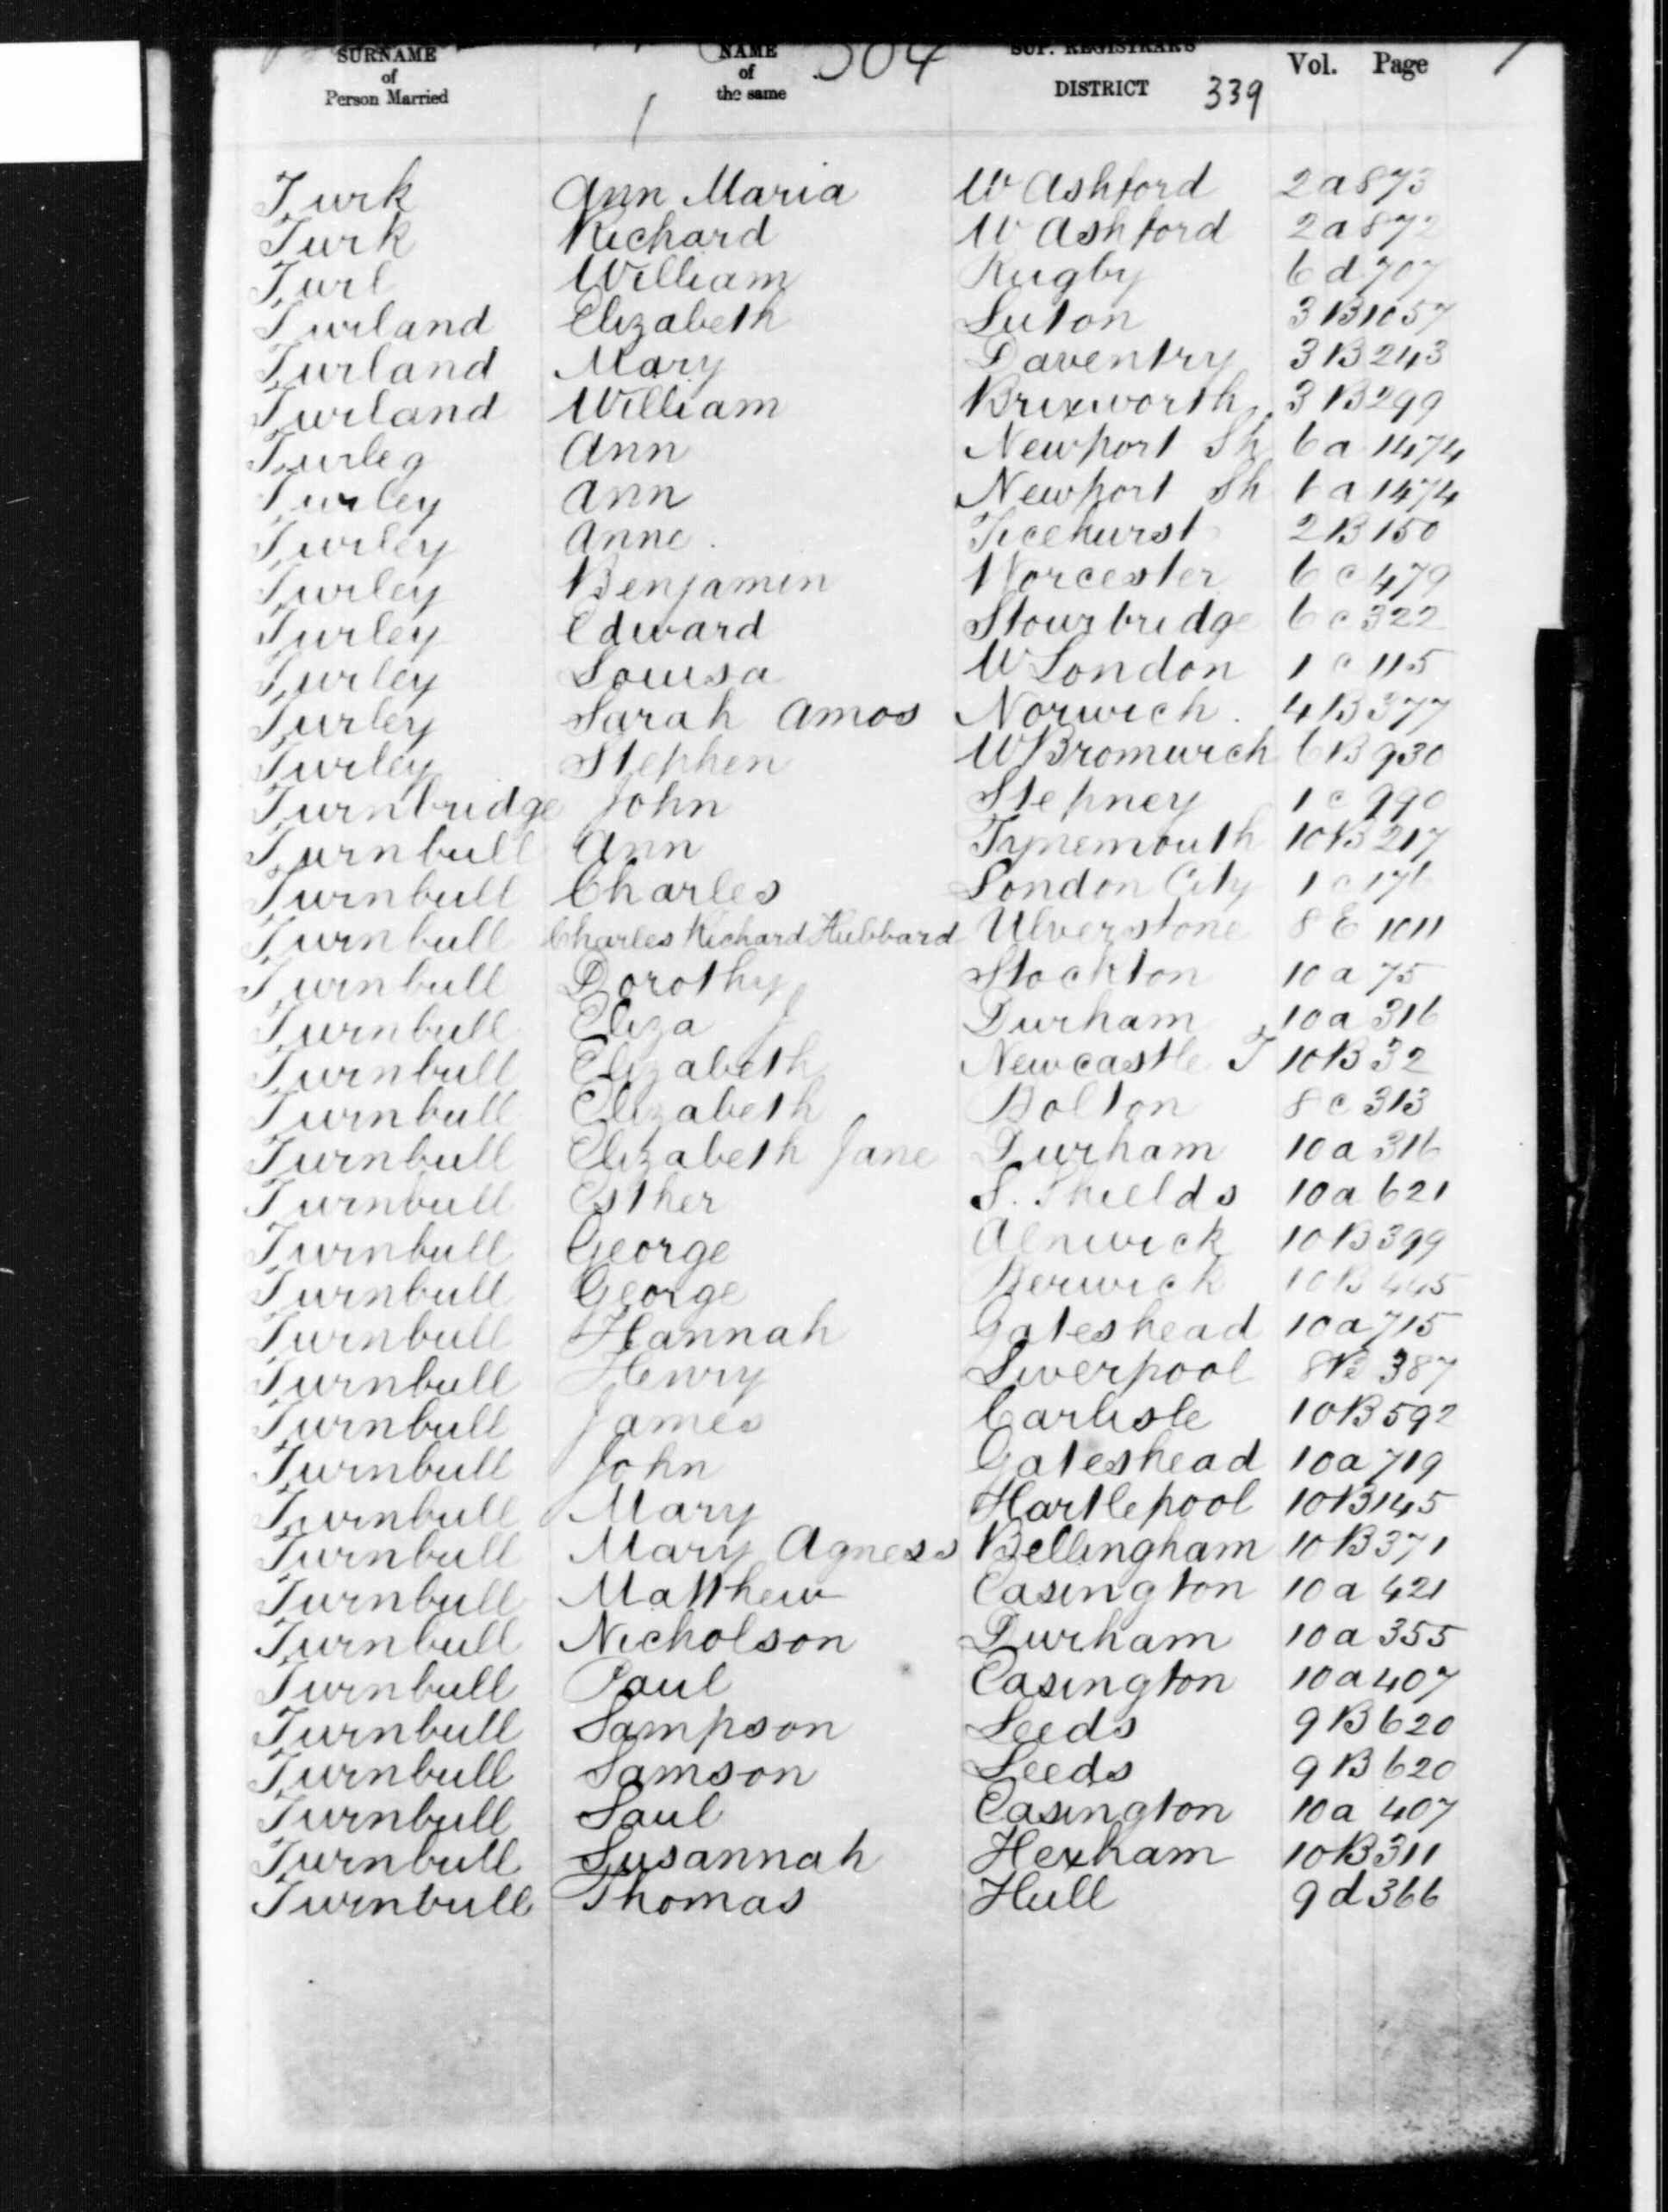 SURNAME of Person Married NAME of the same 304 SUP. REGISTRAR'S DISTRICT 339 Vol. Page
Turk Ann Maria W Ashford 2a 873
Turk Richard W Ashford 2a 872
Turl William Rugby 6d 707
Turland Elizabeth Luton 3B 1057
Turland Mary Daventry 3B 243
Turland William Brixworth 3B 299
Turleg Ann Newport Sh 6a 1474
Turley Ann Newport Sh 6a 1474
Turley Anne Ticehurst 2B 150
Turley Benjamin Worcester 6c 479
Turley Edward Stourbridge 6c 322
Turley Louisa W London 1c 115
Turley Sarah Amos Norwich 4B 377
Turley Stephen W Bromwich 6B 930
Turnbridge John Stepney 1c 990
Turnbull Ann Tynemouth 10B 217
Turnbull Charles London City 1c 176
Turnbull Charles Richard Hubbard Ulverstone 8E 1011
Turnbull Dorothy Stockton 10a 75
Turnbull Eliza J Durham 10a 316
Turnbull Elizabeth Newcastle T 10B 32
Turnbull Elizabeth Bolton 8c 313
Turnbull Elizabeth Jane Durham 10a 316
Turnbull Esther S. Shields 10a 621
Turnbull George Alnwick 10B 399
Turnbull George Berwick 10B 445
Turnbull Hannah Gateshead 10a 715
Turnbull Henry Liverpool 8B 387
Turnbull James Carlisle 10B 592
Turnbull John Gateshead 10a 719
Turnbull Mary Hartlepool 10B 145
Turnbull Mary Agness Bellingham 10B 371
Turnbull Matthew Easington 10a 421
Turnbull Nicholson Durham 10a 355
Turnbull Paul Easington 10a 407
Turnbull Sampson Leeds 9B 620
Turnbull Samson Leeds 9B 620
Turnbull Saul Easington 10a 407
Turnbull Susannah Hexham 10B 311
Turnbull Thomas Hull 9d 366